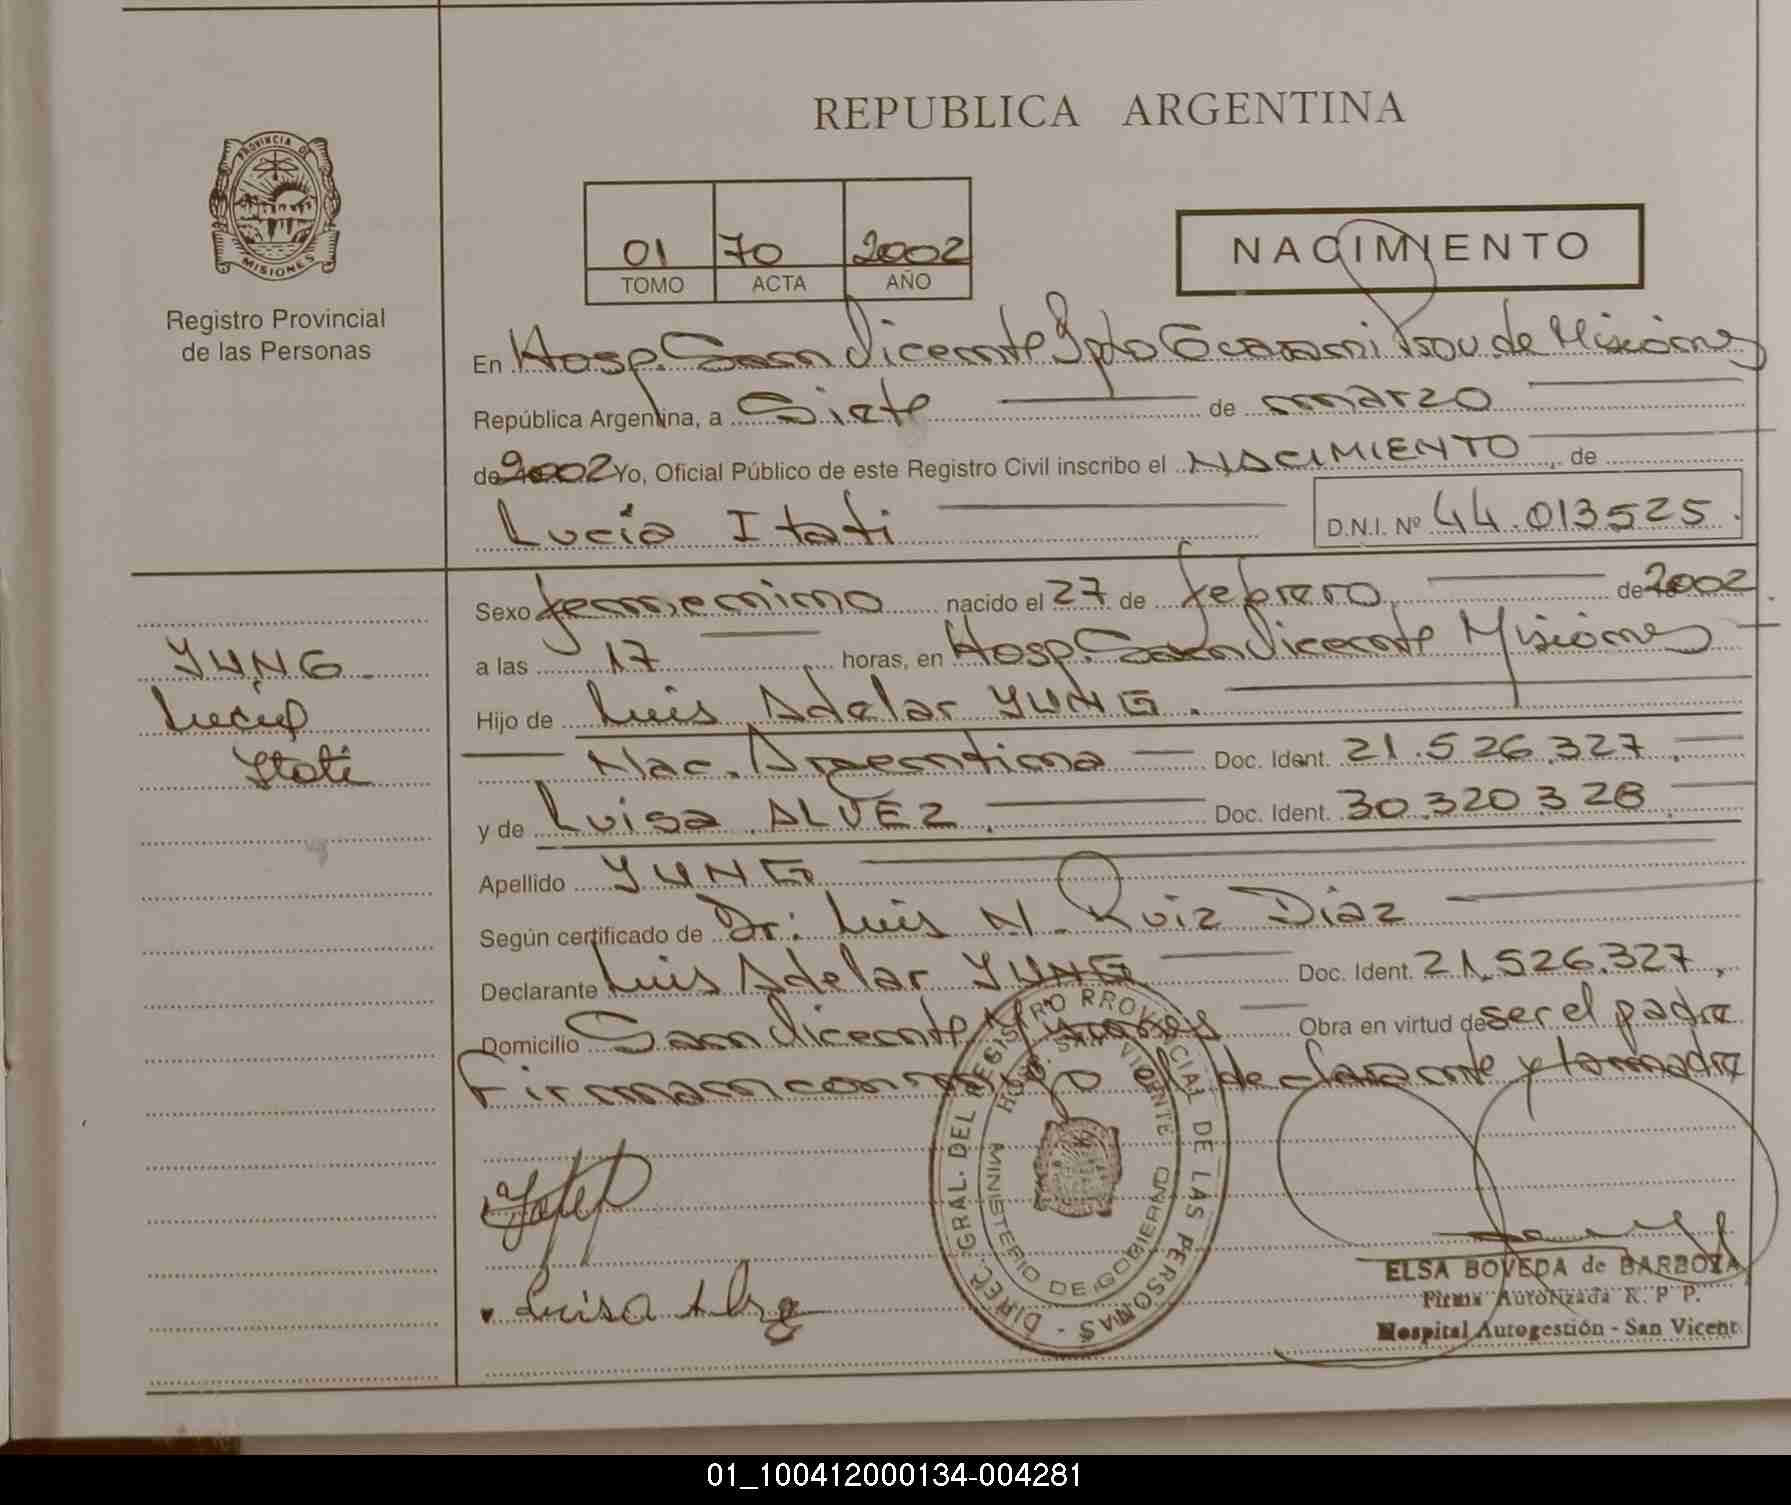 REPUBLICA ARGENTINA
PROVINCIA DE
MISIONES
Registro Provincial
de las Personas
01 70 2002
TOMO ACTA AÑO
NACIMIENTO
En Hosp. San Vicente Dpto Guarani Prov. de Misiones
República Argentina, a Siete de marzo
de 2002 Yo, Oficial Público de este Registro Civil inscribo el NACIMIENTO, de
Lucia Itati D.N.I. Nº 44.013525.
Sexo femenino nacido el 27 de febrero de 2002.
a las 17 horas, en Hosp. San Vicente Misiones
Hijo de Luis Adelar YUNG.
Nac. Argentina Doc. Ident. 21.526.327.
y de Luisa ALVEZ. Doc. Ident. 30.320.328
Apellido YUNG
Según certificado de Dr: Luis N. Ruiz Diaz
Declarante Luis Adelar YUNG Doc. Ident. 21.526.327,
Domicilio San Vicente Misiones Obra en virtud de ser el padre
Firman conmigo el declarante y la madre
YUNG
Lucia
Itati
DIREC. GRAL. DEL REGISTRO PROVINCIAL DE LAS PERSONAS -
HOSP. SAN VICENTE
MINISTERIO DE GOBIERNO
Luisa Alve
ELSA BOVEDA de BARBOZA
Firma Autorizada R. P P.
Hospital Autogestión - San Vicent
01_100412000134-004281